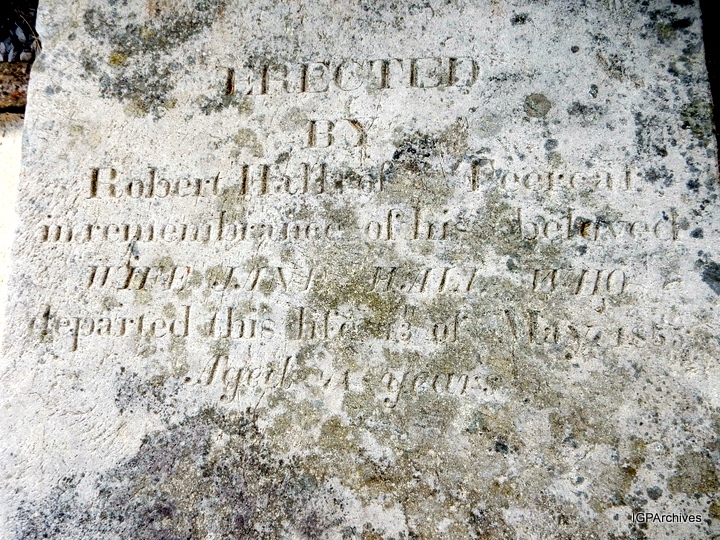 ERECTED
BY
Robert Hall of
in remembrance of his beloved
WIFE JANE HALL WHO
departed this life 13 of May 185
Aged years
IGPArchives